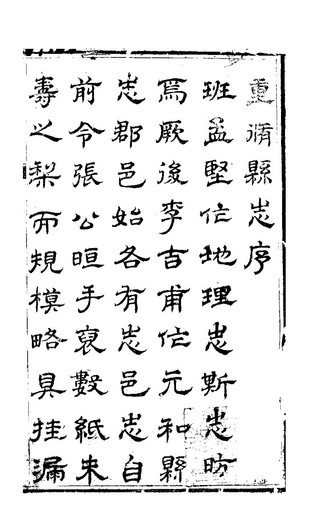 重脩縣志序
班孟堅作地理志斯志昉
焉厥後李吉甫作元和縣
志郡邑始各有志邑志自
前令張公晅手裒數紙未
壽之棃而規模略具挂漏